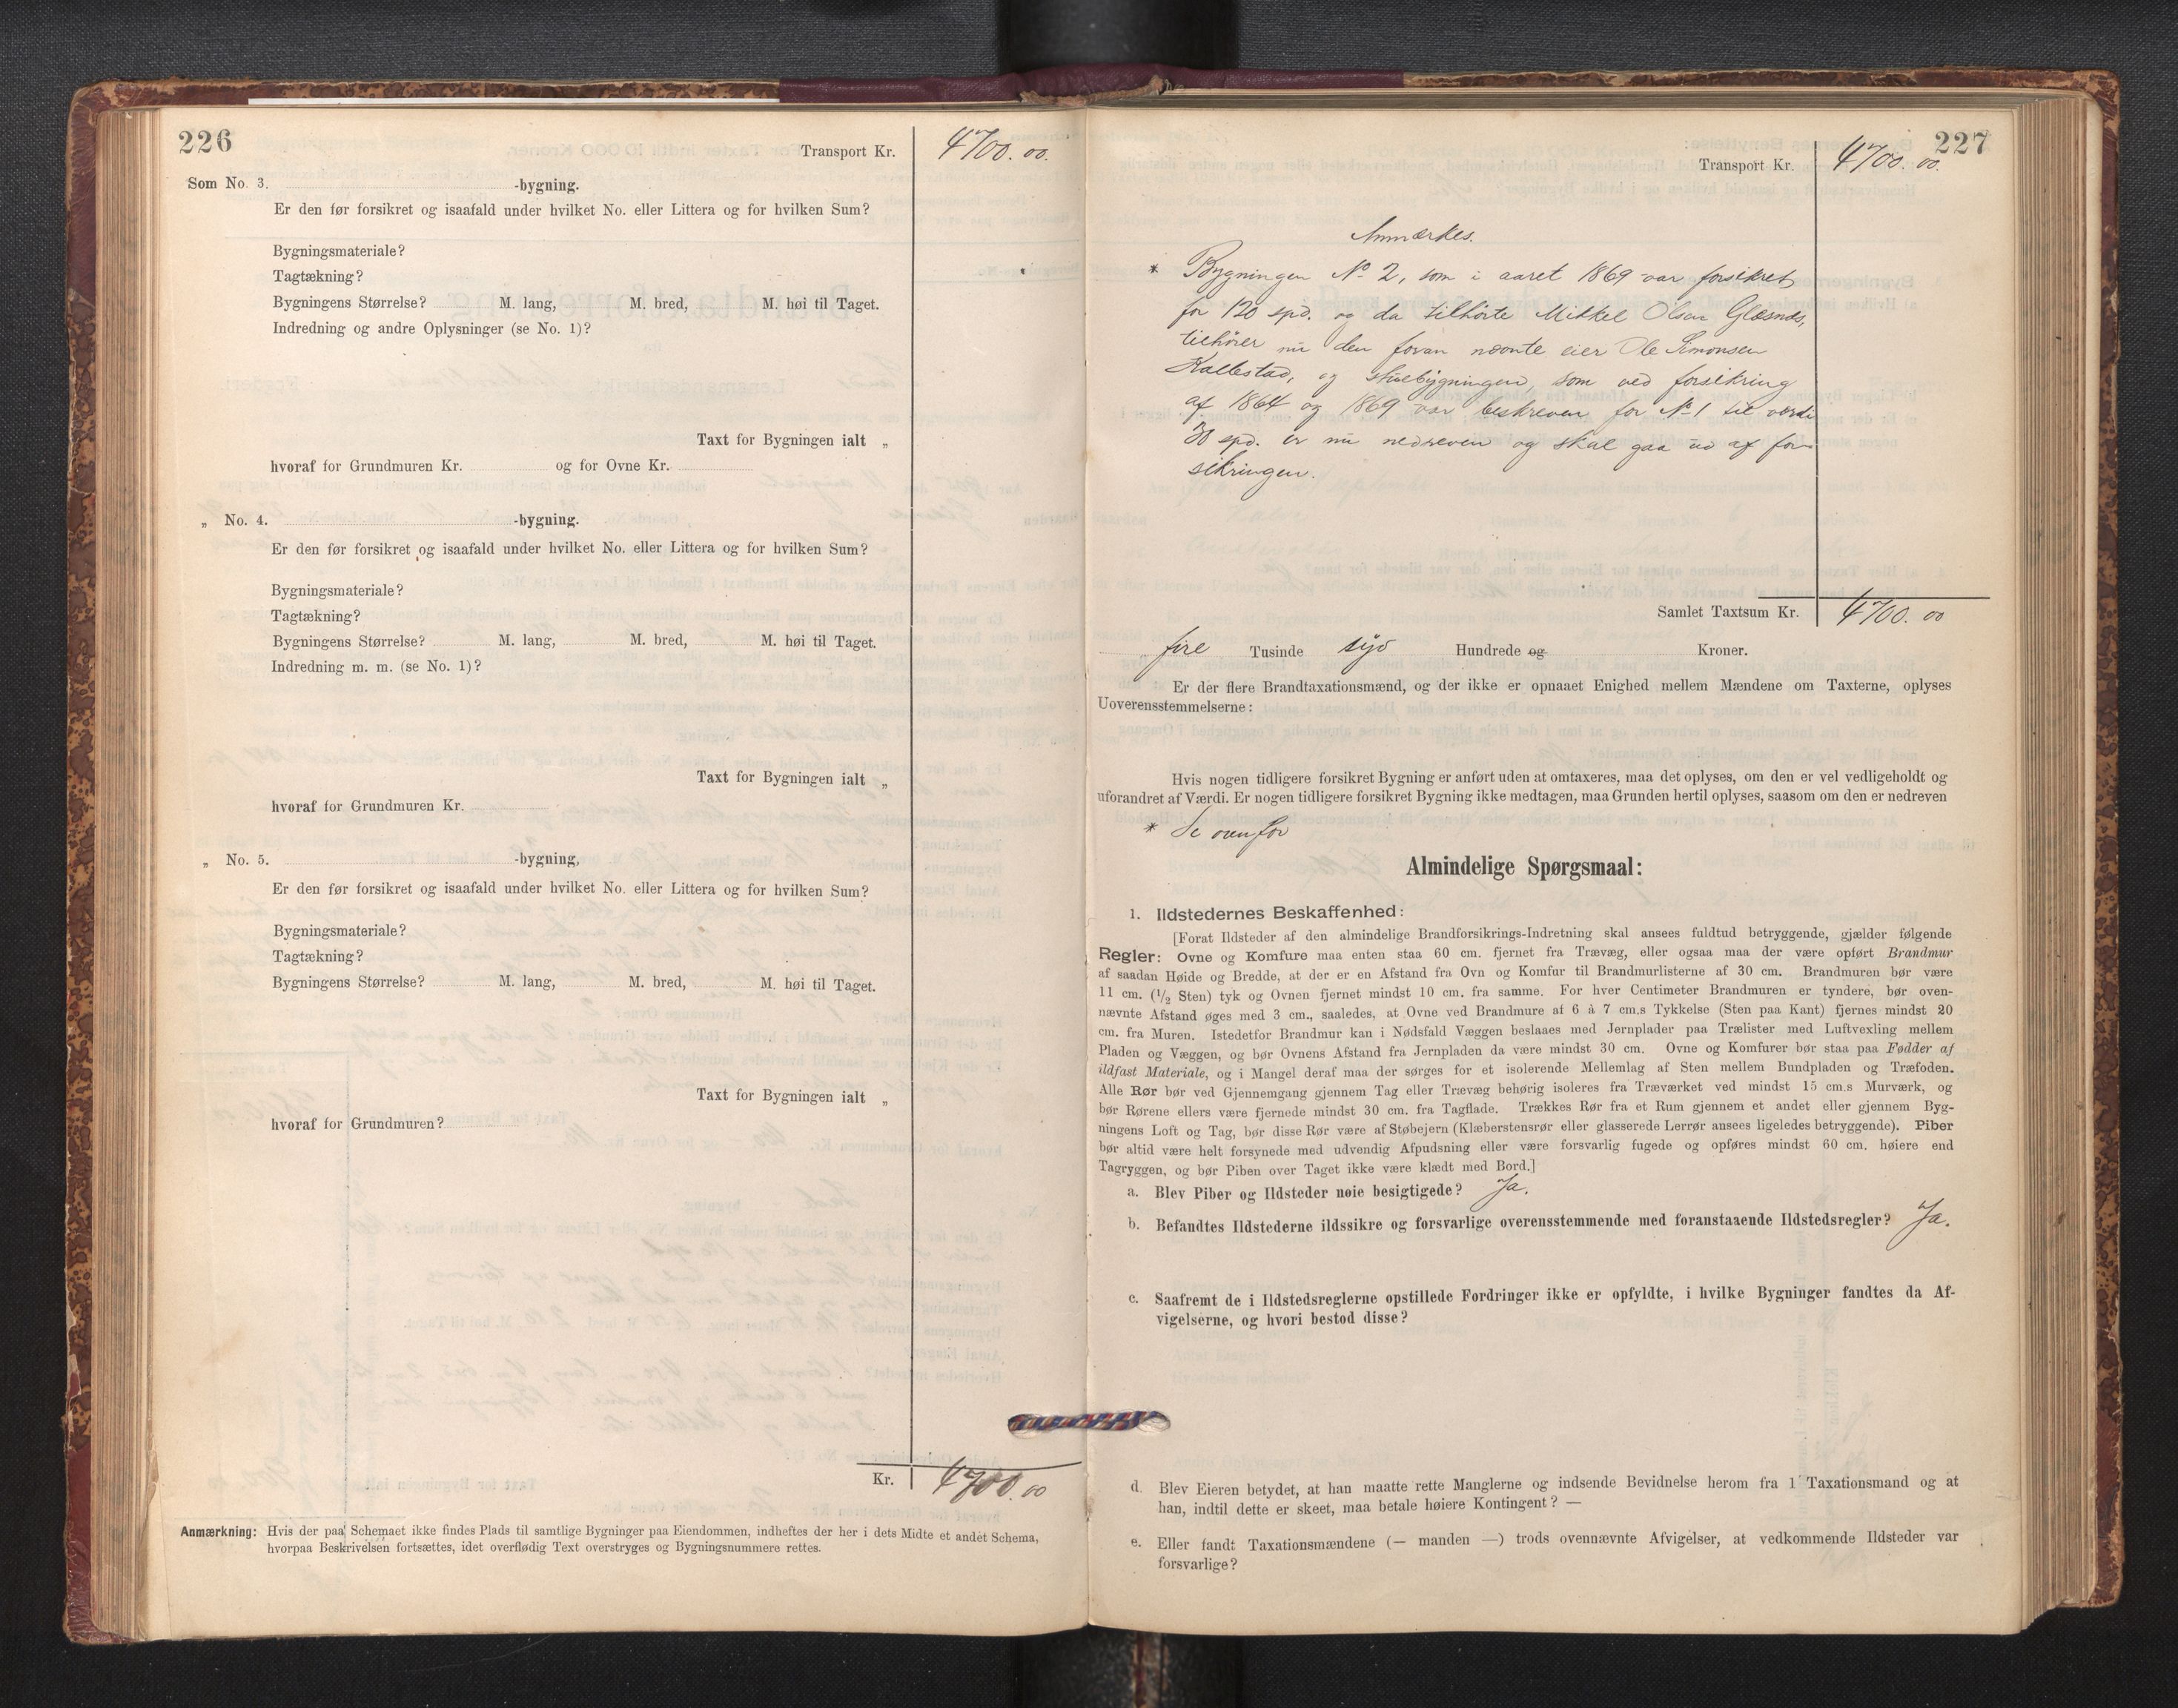 226
Transport Kr. 4700.00.
Som No. 3. -bygning.
Er den før forsikret og isaafald under hvilket No. eller Littera og for hvilken Sum?
Bygningsmateriale?
Tagtækning?
Bygningens Størrelse? M. lang, M. bred, M. høi til Taget.
Indredning og andre Oplysninger (se No. 1)?
Taxt for Bygningen ialt „
hvoraf for Grundmuren Kr. og for Ovne Kr.
„ No. 4. -bygning.
Er den før forsikret og isaafald under hvilket No. eller Littera og for hvilken Sum?
Bygningsmateriale?
Tagtækning?
Bygningens Størrelse? M. lang, M. bred, M. høi til Taget.
Indredning m. m. (se No. 1)?
Taxt for Bygningen ialt „
hvoraf for Grundmuren Kr.
„ No. 5. -bygning,
Er den før forsikret og isaafald under hvilket No. eller Littera og for hvilken Sum?
Bygningsmateriale?
Tagtækning?
Bygningens Størrelse? M. lang, M. bred, M. høi til Taget.
Taxt for Bygningen ialt „
hvoraf for Grundmuren?
Kr. 4700.00
Anmærkning: Hvis der paa Schemaet ikke findes Plads til samtlige Bygninger paa Eiendommen, indheftes der her i dets Midte et andet Schema,
hvorpaa Beskrivelsen fortsættes, idet overflødig Text overstryges og Bygningsnummere rettes.
227
Transport Kr. 4700.00.
Anmærkes.
* Bygningen No 2, som i aaret 1869 var forsikret
for 120 spd. og da tilhörte Mikkel Olsen Glæsnes,
tilhører nu den foran nævnte eier Ole Simonsen
Kallestad, og stuebygningen, som ved forsikring
af 1864 og 1869 var beskreven for No 1 til værdi
30 spd. er nu nedreven og skal gaa ud af for-
sikringen.
Samlet Taxtsum Kr. 4700.00
fire Tusinde syv Hundrede og Kroner.
Er der flere Brandtaxationsmænd, og der ikke er opnaaet Enighed mellem Mændene om Taxterne, oplyses
Uoverensstemmelserne:
Hvis nogen tidligere forsikret Bygning er anført uden at omtaxeres, maa det oplyses, om den er vel vedligeholdt og
uforandret af Værdi. Er nogen tidligere forsikret Bygning ikke medtagen, maa Grunden hertil oplyses, saasom om den er nedreven
* Se ovenfor
Almindelige Spørgsmaal:
1. Ildstedernes Beskaffenhed:
[Forat Ildsteder af den almindelige Brandforsikrings-Indretning skal ansees fuldtud betryggende, gjælder følgende
Regler: Ovne og Komfure maa enten staa 60 cm. fjernet fra Trævæg, eller ogsaa maa der være opført Brandmur
af saadan Høide og Bredde, at der er en Afstand fra Ovn og Komfur til Brandmurlisterne af 30 cm. Brandmuren bør være
11 cm. (1/2 Sten) tyk og Ovnen fjernet mindst 10 cm. fra samme. For hver Centimeter Brandmuren er tyndere, bør oven-
nævnte Afstand øges med 3 cm., saaledes, at Ovne ved Brandmure af 6 à 7 cm.s Tykkelse (Sten paa Kant) fjernes mindst 20
cm. fra Muren. Istedetfor Brandmur kan i Nødsfald Væggen beslaaes med Jernplader paa Trælister med Luftvexling mellem
Pladen og Væggen, og bør Ovnens Afstand fra Jernpladen da være mindst 30 cm. Ovne og Komfurer bør staa paa Fødder af
ildfast Materiale, og i Mangel deraf maa der sørges for et isolerende Mellemlag af Sten mellem Bundpladen og Træfoden.
Alle Rør bør ved Gjennemgang gjennem Tag eller Trævæg behørig isoleres fra Træværket ved mindst 15 cm.s Murværk, og
bør Rørene ellers være fjernede mindst 30 cm. fra Tagflade. Trækkes Rør fra et Rum gjennem et andet eller gjennem Byg-
ningens Loft og Tag, bør disse Rør være af Støbejern (Klæberstensrør eller glasserede Lerrør ansees ligeledes betryggende). Piber
bør altid være helt forsynede med udvendig Afpudsning eller være forsvarlig fugede og opføres mindst 60 cm. høiere end
Tagryggen, og bør Piben over Taget ikke være klædt med Bord.]
a. Blev Piber og Ildsteder nøie besigtigede? Ja.
b. Befandtes Ildstederne ildssikre og forsvarlige overensstemmende med foranstaaende Ildstedsregler? Ja.
c. Saafremt de i Ildstedsreglerne opstillede Fordringer ikke er opfyldte, i hvilke Bygninger fandtes da Af-
vigelserne, og hvori bestod disse?
d. Blev Eieren betydet, at han maatte rette Manglerne og indsende Bevidnelse herom fra 1 Taxationsmand og at
han, indtil dette er skeet, maa betale høiere Kontingent? —
e. Eller fandt Taxationsmændene (— manden —) trods ovennævnte Afvigelser, at vedkommende Ildsteder var
forsvarlige?